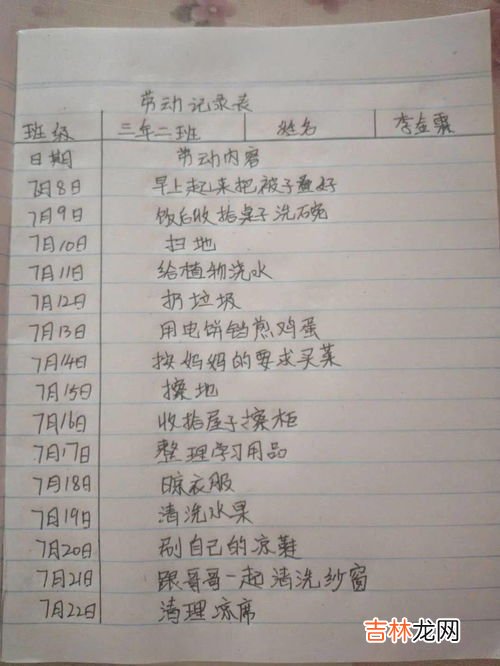 劳动记录表
班级 三年二班 姓名 李金霖
日期 劳动内容
7月8日 早上起来把被子叠好
7月9日 饭后收拾桌子洗碗
7月10日 扫地
7月11日 给植物浇水
7月12日 扔垃圾
7月13日 用电饼铛煎鸡蛋
7月14日 按妈妈的要求买菜
7月15日 擦地
7月16日 收拾屋子擦柜
7月17日 整理学习用品
7月18日 晾衣服
7月19日 清洗水果
7月20日 刷自己的凉鞋
7月21日 跟哥哥一起清洗纱窗
7月22日 清理凉席
吉林龙网